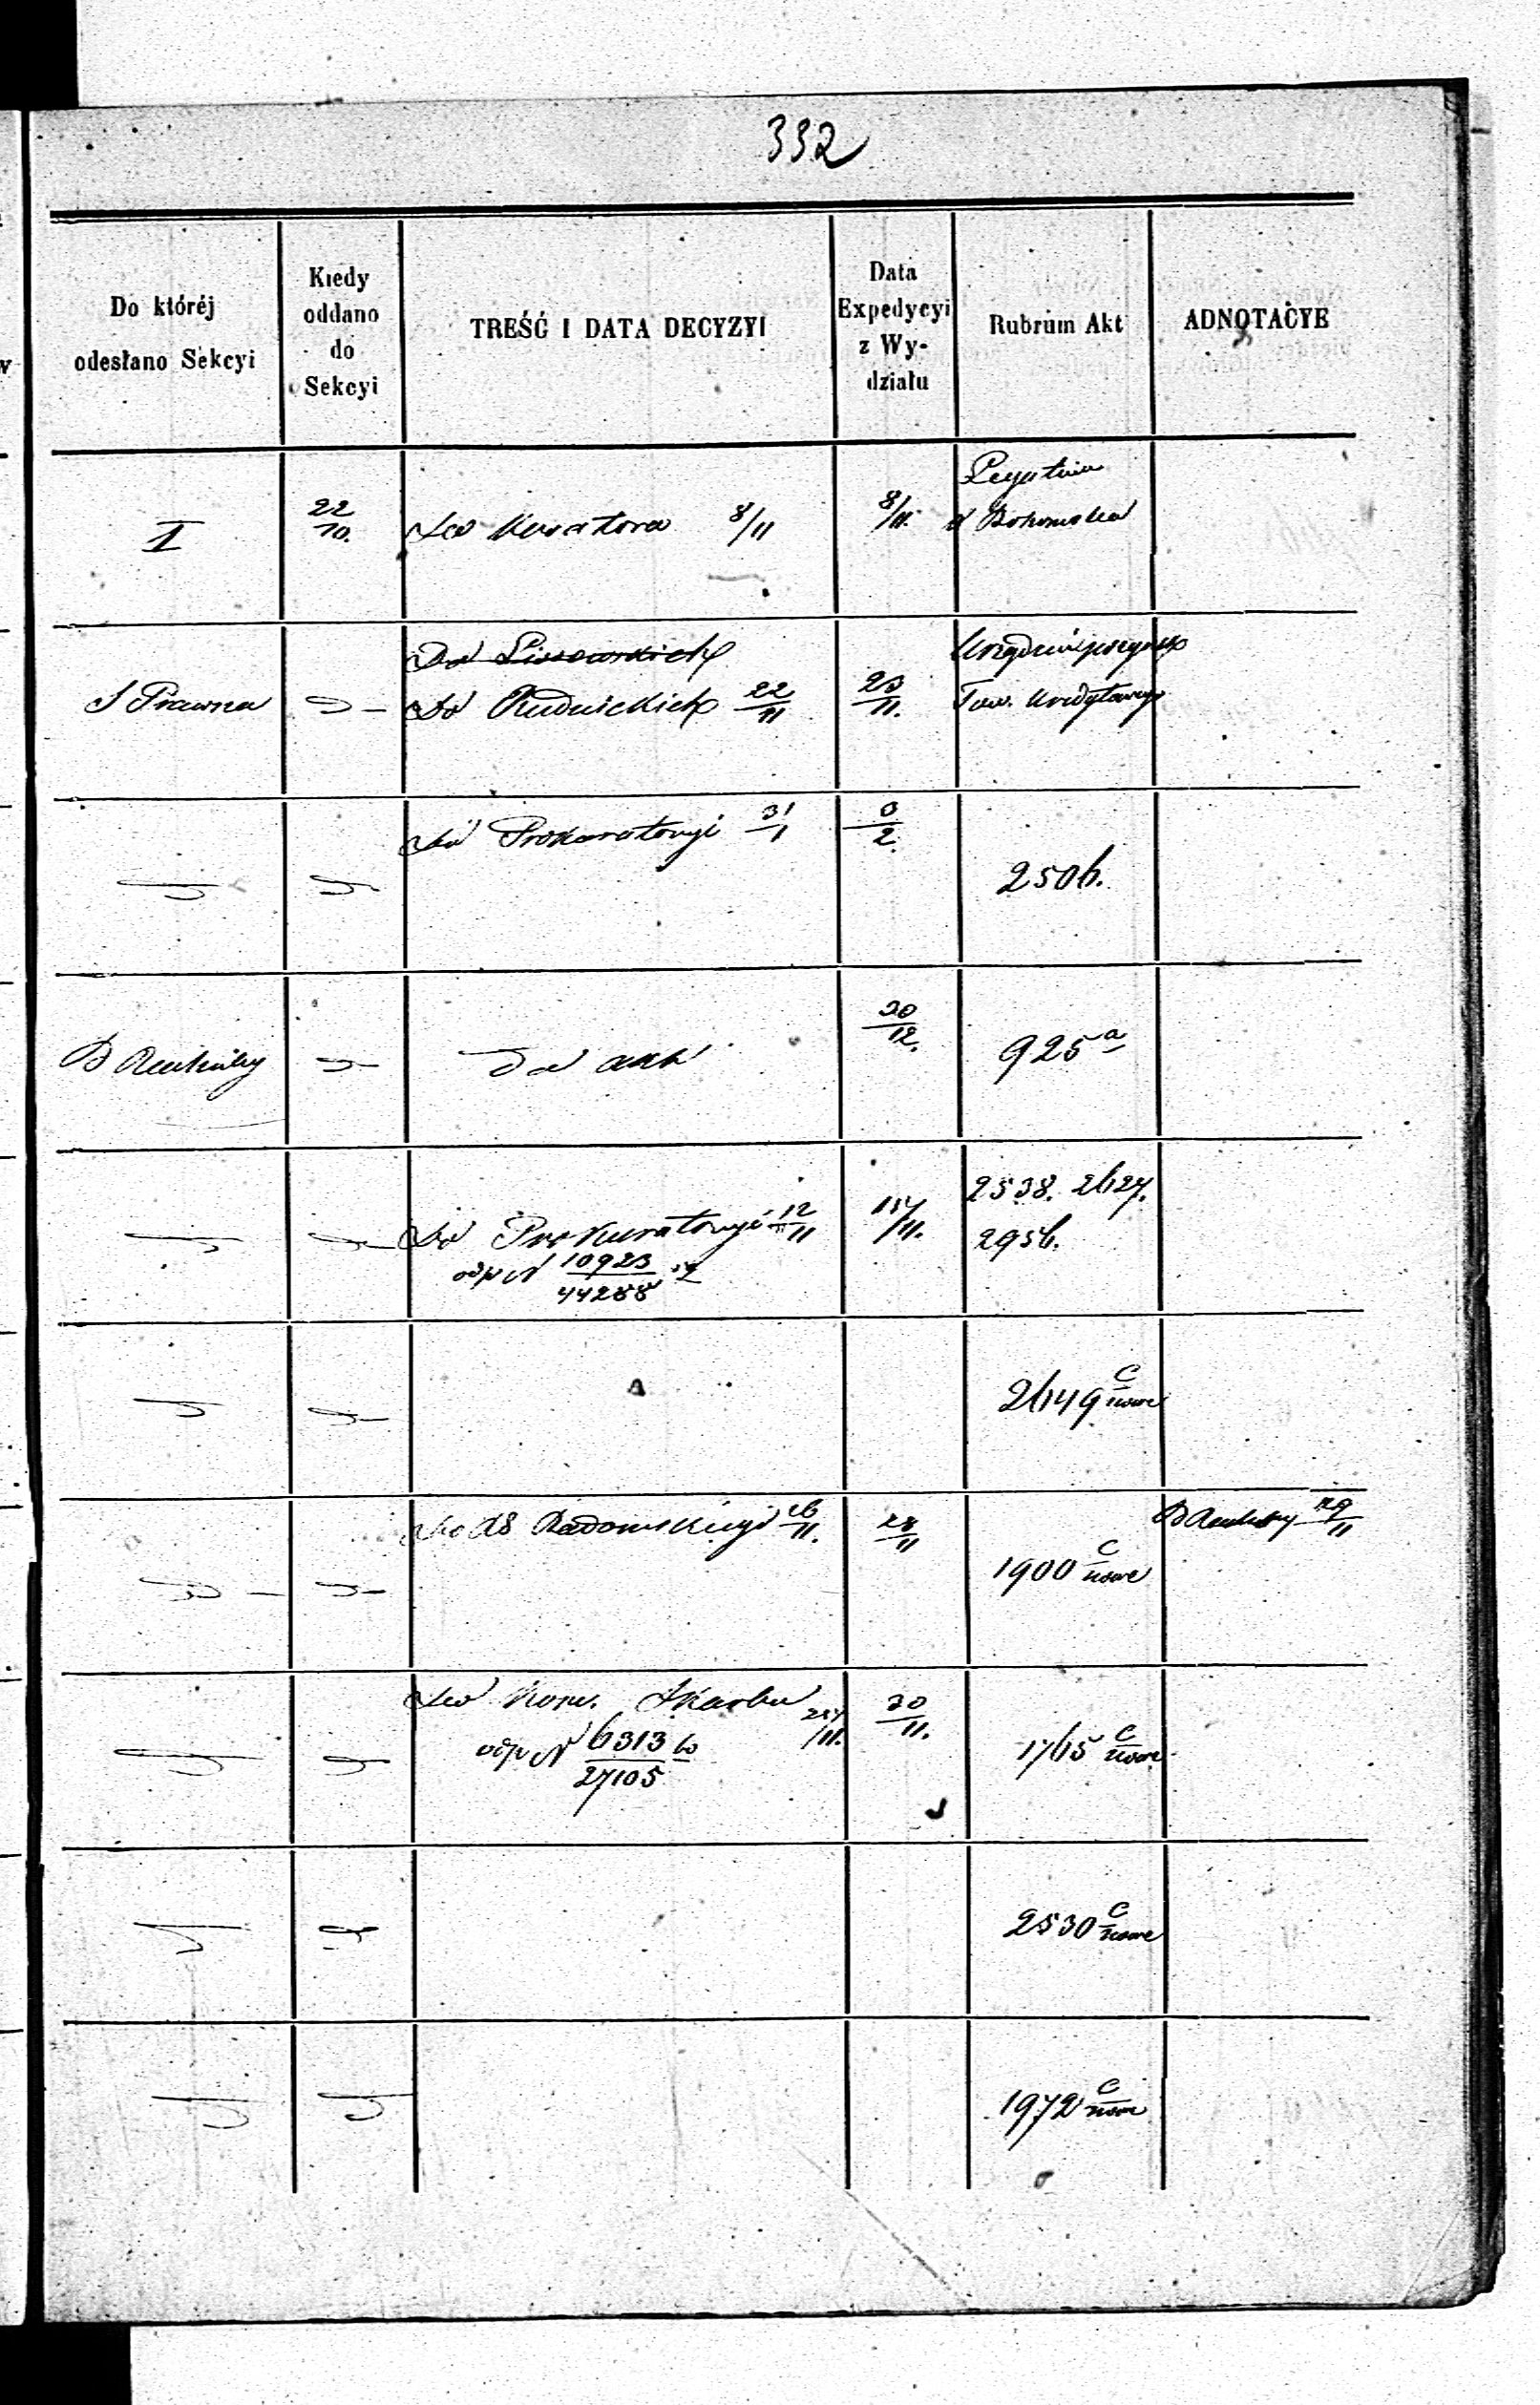 332
Do któréj odesłano Sekcyi
Kiedy oddano do Sekcyi
TREŚĆ I DATA DECYZYI
Data Expedycyi z Wy- działu
Rubrum Akt
ADNOTACYE
II
22/10.
Do Kuratora 8/11
8/11.
S Prawna
Do Lissowskich
Do Rudnickich 22/11
23/11.
Tow. Kredytowego
Do Prokuratoryi 31/1
3/2.
2506.
Do akt
30/12.
925 a
Do Prokuratoryi 12/11
odp N 10923/44288
2538. 2627.
2956.
2649 C nowe
Radomskiéj 26/11.
28/11
1900 C nowe
29/11
Do Kom. Skarbu
odp N 6313/27105
30/11.
1765 C nowe
2530 C nowe
1972 C nowe